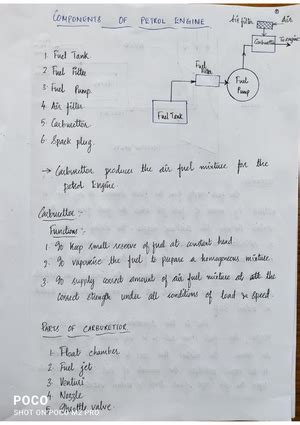 COMPONENTS OF PETROL ENGINE
Air filter
Air
Carburettor
To engine
Fuel
Filter
Fuel
Pump
Fuel Tank
1. Fuel Tank
2. Fuel Filter
3. Fuel Pump
4. Air filter
5. Carburettor
6. Spark plug.
→ Carburettor produces the air fuel mixture for the
petrol Engine
Carburettor :-
Functions :-
1. To keep small reserve of fuel at constant head.
2. To vapourise the fuel to prepare a homogeneous mixture.
3. To supply correct amount of air fuel mixture at the
correct strength under all conditions of load & speed.
PARTS OF CARBURETTOR
1. Float chamber
2. Fuel jet
3. Venturi
4. Nozzle
5. Throttle valve.
POCO
SHOT ON POCO M2 PRO